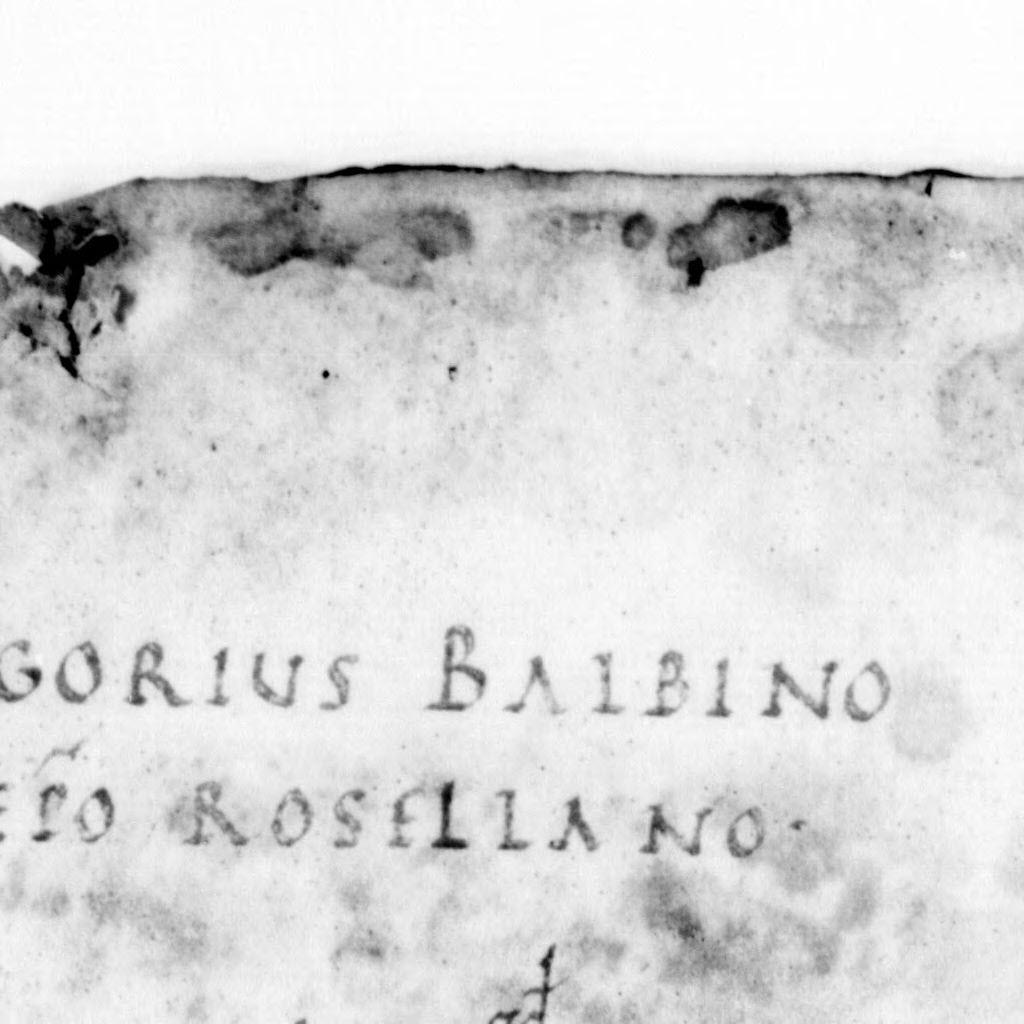 GORIUS BALBINO
EP̃O ROSELLANO·